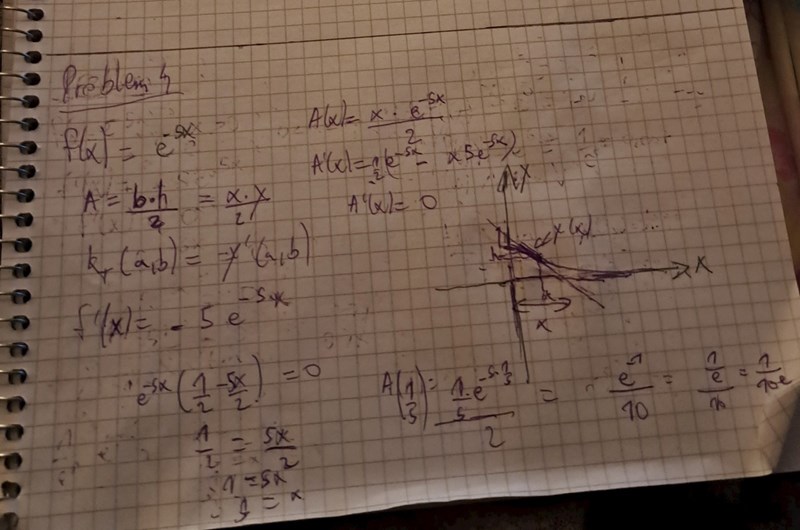 Problem 4
f(x) = e^{-5x}
A = b·h/2 = x·y/2
k_T(a,b) = -y'(a,b)
f'(x) = -5e^{-5x}
e^{-5x}(1/2 - 5x/2) = 0
1/2 = 5x/2
1 = 5x
= x
A(x) = x·e^{-5x}/2
A'(x) = 1/2(e^{-5x} - x5e^{-5x})
A'(x) = 0
y
x
x
A(1/5) = 1/5 e^{-5·1/5}/2 = e^{-1}/10 = 1/e/10 = 1/10e